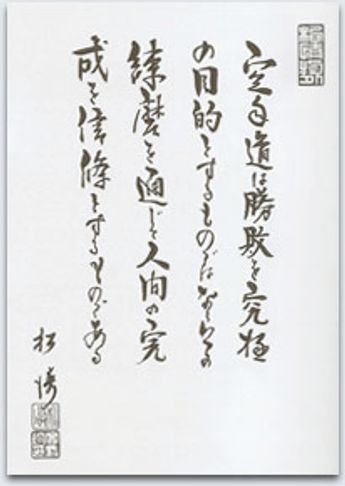 空手道は勝敗を究極
の目的とするものではなく心の
練磨を通じて人間の完
成を信條とするものである
松涛